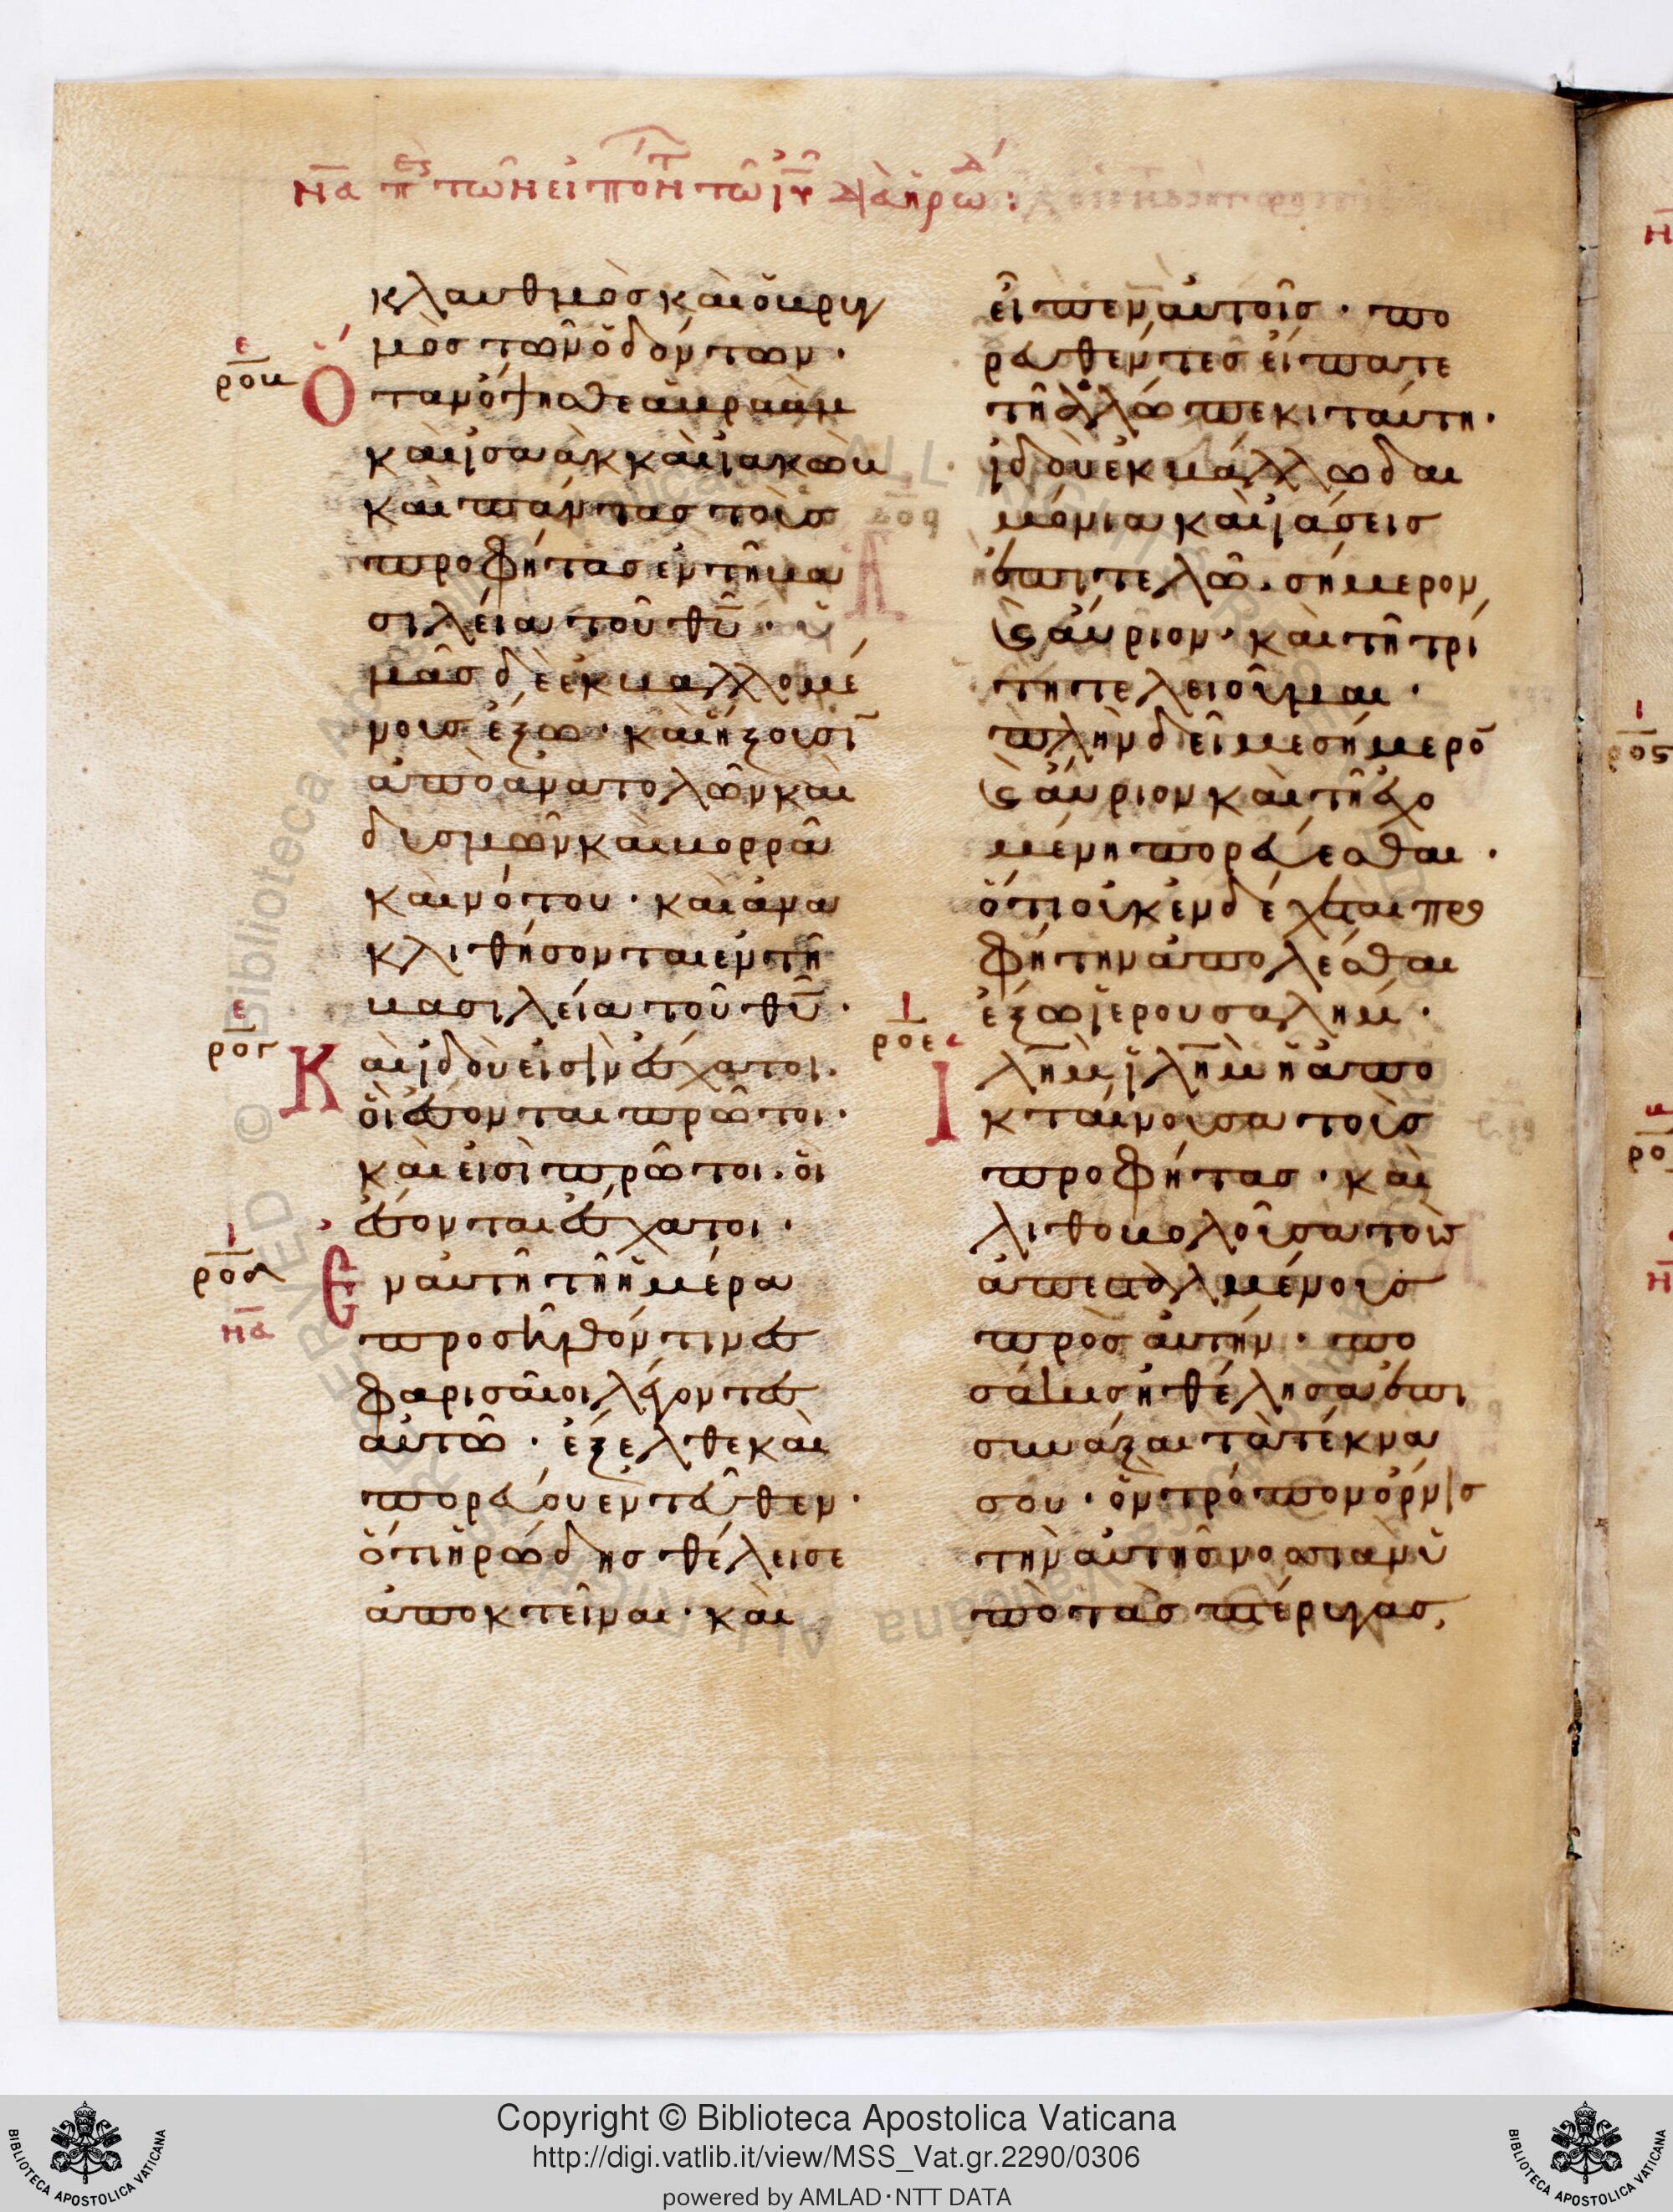 να π ες των ειποντ τω ιυ δια ηρω δ :
κλαυθμὸς καὶ ὁ βρυγ
μὸς τῶν ὀδόντων·
ε
ροβ
Ὅταν ὄψησθε ἀβραὰμ
καὶ ἰσαὰκ καὶ ἰακὼβ
καὶ πάντας τοὺς
προφήτας ἐν τῆ βα
σιλεία τοῦ θῦ· ὑ
μᾶς δὲ ἐκβαλλομέ
νους ἔξω· καὶ ἥξουσῑ
ἀπὸ ἀνατολῶν καὶ
δυσμῶν καὶ βορρᾶ
καὶ νότου· καὶ ἀνα
κλιθήσονται ἐν τῆ
βασιλεία τοῦ θῦ·
ε
ρογ
Καὶ ἰδοὺ εἰσὶν ἔσχατοι·
οἳ ἔσονται πρῶτοι·
καὶ εἰσὶ πρῶτοι· οἳ
ἔσονται ἔσχατοι·
ι
ροδ
να
Ἐν αὐτῆ τῆ ἡμέρα
προσῆλθόν τινες
φαρισαῖοι λέγοντες
αὐτῶ· ἔξελθε καὶ
πορεύου ἐντεῦθεν·
ὅτι ἡρώδης θέλει σε
ἀποκτεῖναι· καὶ
εἶπεν αὐτοῖς· πο
ρευθέντες εἴπατε
τῆ ἀλώπεκι ταύτη·
ἰδοὺ ἐκβάλλω δαι
μόνια καὶ ἰάσεις
ἐπιτελῶ· σήμερον
ϛ αὔριον· καὶ τῆ τρί
τη τελειοῦμαι·
πλὴν δεῖ με σήμερō
ϛ αὔριον καὶ τῆ ἐχο
μένη πορεύεσθαι·
ὅτι οὐκ ἐνδέχεται προ
φήτην ἀπολέσθαι
ἔξω ἰερουσαλήμ·
ι
ροε
Ἰλημ ἰλημ ἡ ἀπο
κταίνουσα τοὺς
προφήτας· καὶ
λιθοβολοῦσα τοὺς
ἀπεσταλμένους
πρὸς αὐτήν· πο
σάκις ἠθέλησα ἐπι
συνάξαι τὰ τέκνα
σου· ὃν τρόπον ὄρνις
τὴν αὐτῆς νοσσιὰν ὑ
πὸ τὰς πτέρυγας,
Copyright © Biblioteca Apostolica Vaticana
http://digi.vatlib.it/view/MSS_Vat.gr.2290/0306
powered by AMLAD·NTT DATA
BIBLIOTECA APOSTOLICA VATICANA
BIBLIOTECA APOSTOLICA VATICANA